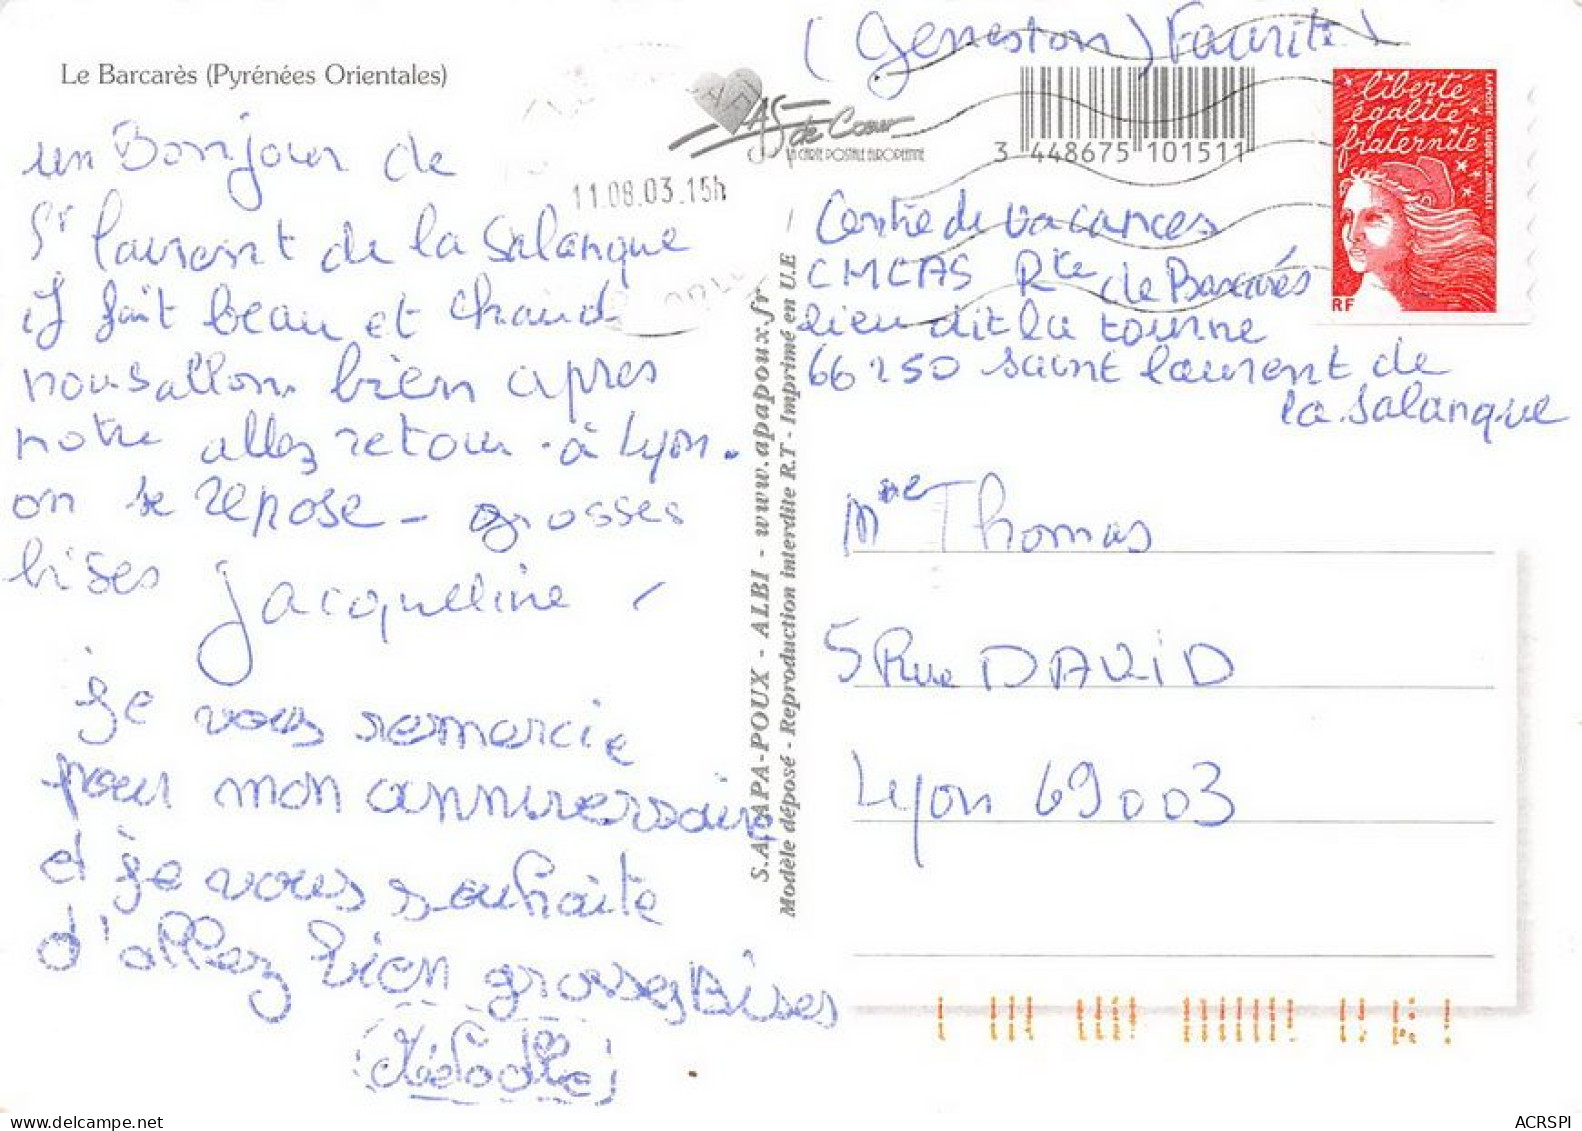 Le Barcarès (Pyrénées Orientales)
un Bonjour de
St laurent de la Salanque
il fait beau et chaud
nous allons bien apres
notre allez retour à Lyon.
on se repose - grosses
bises
Jacqueline
je vous remercie
pour mon anniversaire
et je vous souhaite
d'allez bien grosses Bises
Mélodie
AS de Cœur
LA CARTE POSTALE EUROPÉENNE
11.08.03.15h
S.A. APA-POUX - ALBI - www.apapoux.fr
Modèle déposé - Reproduction interdite R.T - Imprimé en U.E
(Geneston)
3 448675 101511
liberté
égalité
fraternité
RF
LA POSTE
Centre de vacances
CMCAS Rte de Barcarés
lieu dit la tourne
66250 saint laurent de
la salanque
Mme Thomas
5 Rue DAVID
Lyon 69003
ACRSPI